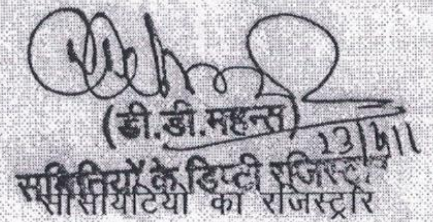 (डी.डी.महन्स)
13/4/11
समितियों के डिप्टी रजिस्ट्रार
सोसायटियों का रजिस्ट्रार